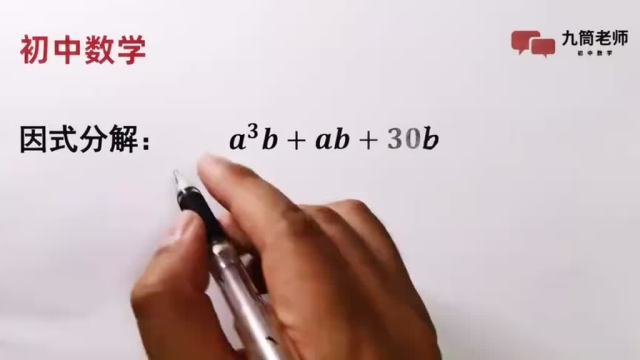 初中数学
九筒老师
初中数学
因式分解： a³b + ab + 30b